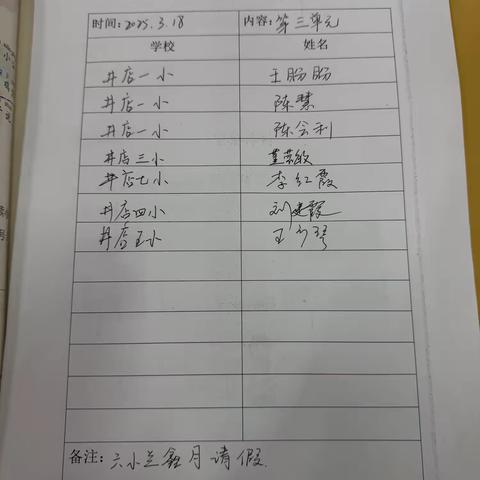 时间: 2025.3.18 内容: 第三单元
学校 姓名
井店一小 王肠肠
井店一小 陈慧
井店一小 陈会利
井店三小 董荣敏
井店七小 李红霞
井店四小 刘建霞
井店五小 王
备注: 六小兰鑫月请假